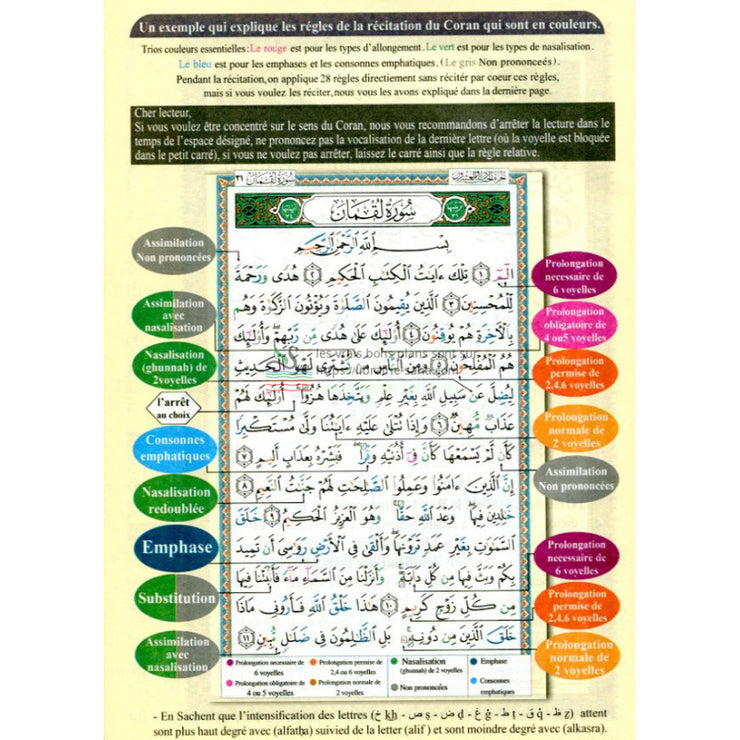 Un exemple qui explique les régles de la récitation du Coran qui sont en couleurs.
Trios couleurs essentielles:Le rouge est pour les types d'allongement. Le vert est pour les types de nasalisation.
Le bleu est pour les emphases et les consonnes emphatiques. (Le gris Non prononceés).
Pendant la récitation,on applique 28 règles directiement sans récité par coeur ces règles,
mais si vous voulez les réciter,nous vous les avons expliqué dans la dernière page.
Cher lecteur,
Si vous voulez être concentré sur le sens du Coran, nous vous recommandons d'arrêter la lecture dans le
temps de l'espace désigné, ne prononcez pas la vocalisation de la dernière lettre (où la voyelle est bloquée
dans le petit carré), si vous ne voulez pas arrêter, laissez le carré ainsi que la règle relative.
٣١ سُورَةُ لُقْمَان
سُورَةُ لُقْمَانَ
بِسْمِ اللَّهِ الرَّحْمَٰنِ الرَّحِيمِ
الٓمٓ ١ تِلْكَ ءَايَٰتُ الْكِتَٰبِ الْحَكِيمِ ٢ هُدًى وَرَحْمَةً
لِّلْمُحْسِنِينَ ٣ الَّذِينَ يُقِيمُونَ الصَّلَوٰةَ وَيُؤْتُونَ الزَّكَوٰةَ وَهُم
بِالْءَاخِرَةِ هُمْ يُوقِنُونَ ٤ أُولَٰٓئِكَ عَلَىٰ هُدًى مِّن رَّبِّهِمْ وَأُولَٰٓئِكَ
هُمُ الْمُفْلِحُونَ ٥ وَمِنَ النَّاسِ مَن يَشْتَرِى لَهْوَ الْحَدِيثِ
لِيُضِلَّ عَن سَبِيلِ اللَّهِ بِغَيْرِ عِلْمٍ وَيَتَّخِذَهَا هُزُوًا أُولَٰٓئِكَ لَهُمْ
عَذَابٌ مُّهِينٌ ٦ وَإِذَا تُتْلَىٰ عَلَيْهِ ءَايَٰتُنَا وَلَّىٰ مُسْتَكْبِرًا
كَأَن لَّمْ يَسْمَعْهَا كَأَنَّ فِىٓ أُذُنَيْهِ وَقْرًا فَبَشِّرْهُ بِعَذَابٍ أَلِيمٍ ٧
إِنَّ الَّذِينَ ءَامَنُوا وَعَمِلُوا الصَّٰلِحَٰتِ لَهُمْ جَنَّٰتُ النَّعِيمِ ٨
خَٰلِدِينَ فِيهَا وَعْدَ اللَّهِ حَقًّا وَهُوَ الْعَزِيزُ الْحَكِيمُ ٩ خَلَقَ
السَّمَٰوَٰتِ بِغَيْرِ عَمَدٍ تَرَوْنَهَا وَأَلْقَىٰ فِى الْأَرْضِ رَوَٰسِىَ أَن تَمِيدَ
بِكُمْ وَبَثَّ فِيهَا مِن كُلِّ دَآبَّةٍ وَأَنزَلْنَا مِنَ السَّمَآءِ مَآءً فَأَنۢبَتْنَا فِيهَا
مِن كُلِّ زَوْجٍ كَرِيمٍ ١٠ هَٰذَا خَلْقُ اللَّهِ فَأَرُونِى مَاذَا
خَلَقَ الَّذِينَ مِن دُونِهِ بَلِ الظَّٰلِمُونَ فِى ضَلَٰلٍ مُّبِينٍ ١١
Assimilation
Non prononcées
Assimilation
avec
nasalisation
Nasalisation
(ghunnah) de
2voyelles
l'arrêt
au choix
Consonnes
emphatiques
Nasalisation
redoublée
Emphase
Substitution
Assimilation
avec
nasalisation
Prolongation
necessaire de
6 voyelles
Prolongation
obligatoire de
4 ou5 voyelles
Prolongation
permise de
2,4.6 voyelles
Prolongation
normale de
2 voyelles
Assimilation
Non prononcées
Prolongation
necessaire de
6 voyelles
Prolongation
permise de
2,4.6 voyelles
Prolongation
normale de
2 voyelles
les vrais bons plans sont sur
Prolongation necessaire de
6 voyelles
Prolongation permise de
2,4 ou 6 voyelles
Nasalisation
(ghunnah) de 2 voyelles
Emphase
Prolongation obligatoire de
4 ou 5 voyelles
Prolongation normale de
2 voyelles
Non prononcées
Consonnes
emphatiques
- En Sachent que l'intensification des lettres (خ kh - ص ṣ - ض ḍ - غ ġ - ط ṭ - ق q - ظ z) attent
sont plus haut degré avec (alfatḥa) suivied de la letter (alif ) et sont moindre degré avec (alkasra).